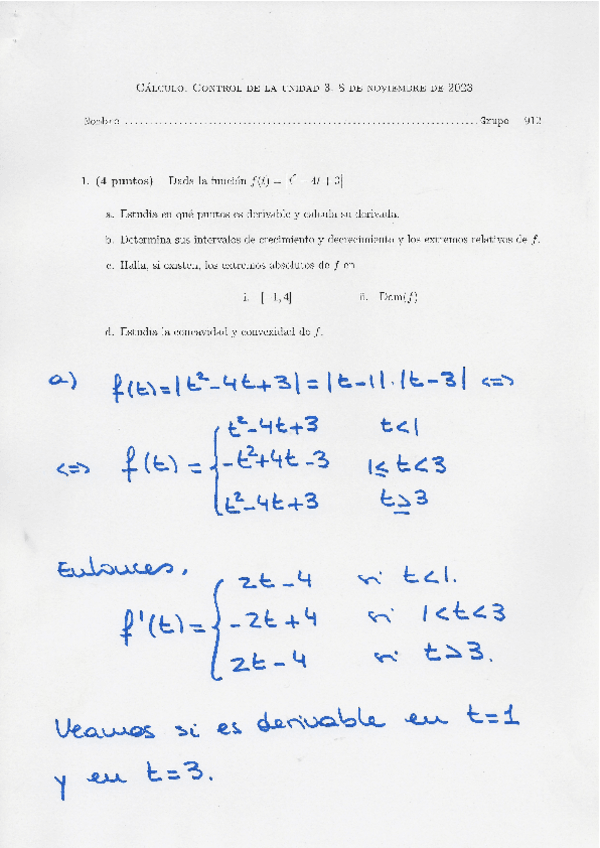 CÁLCULO. CONTROL DE LA UNIDAD 3. 8 DE NOVIEMBRE DE 2023
Nombre ........................................................................ Grupo 912
1. (4 puntos) Dada la función f(t) = |t² - 4t + 3|
a. Estudia en qué puntos es derivable y calcula su derivada.
b. Determina sus intervalos de crecimiento y decrecimiento y los extremos relativos de f.
c. Halla, si existen, los extremos absolutos de f en
i. [-1, 4] ii. Dom(f)
d. Estudia la concavidad y convexidad de f.
a) f(t)=|t²-4t+3|=|t-1|·|t-3| <=>
t²-4t+3 t<1
<=> f(t) = { -t²+4t-3 1≤t<3
t²-4t+3 t≥3
Entonces,
2t-4 si t<1.
f'(t)= { -2t+4 si 1<t<3
2t-4 si t>3.
Veamos si es derivable en t=1
y en t=3.